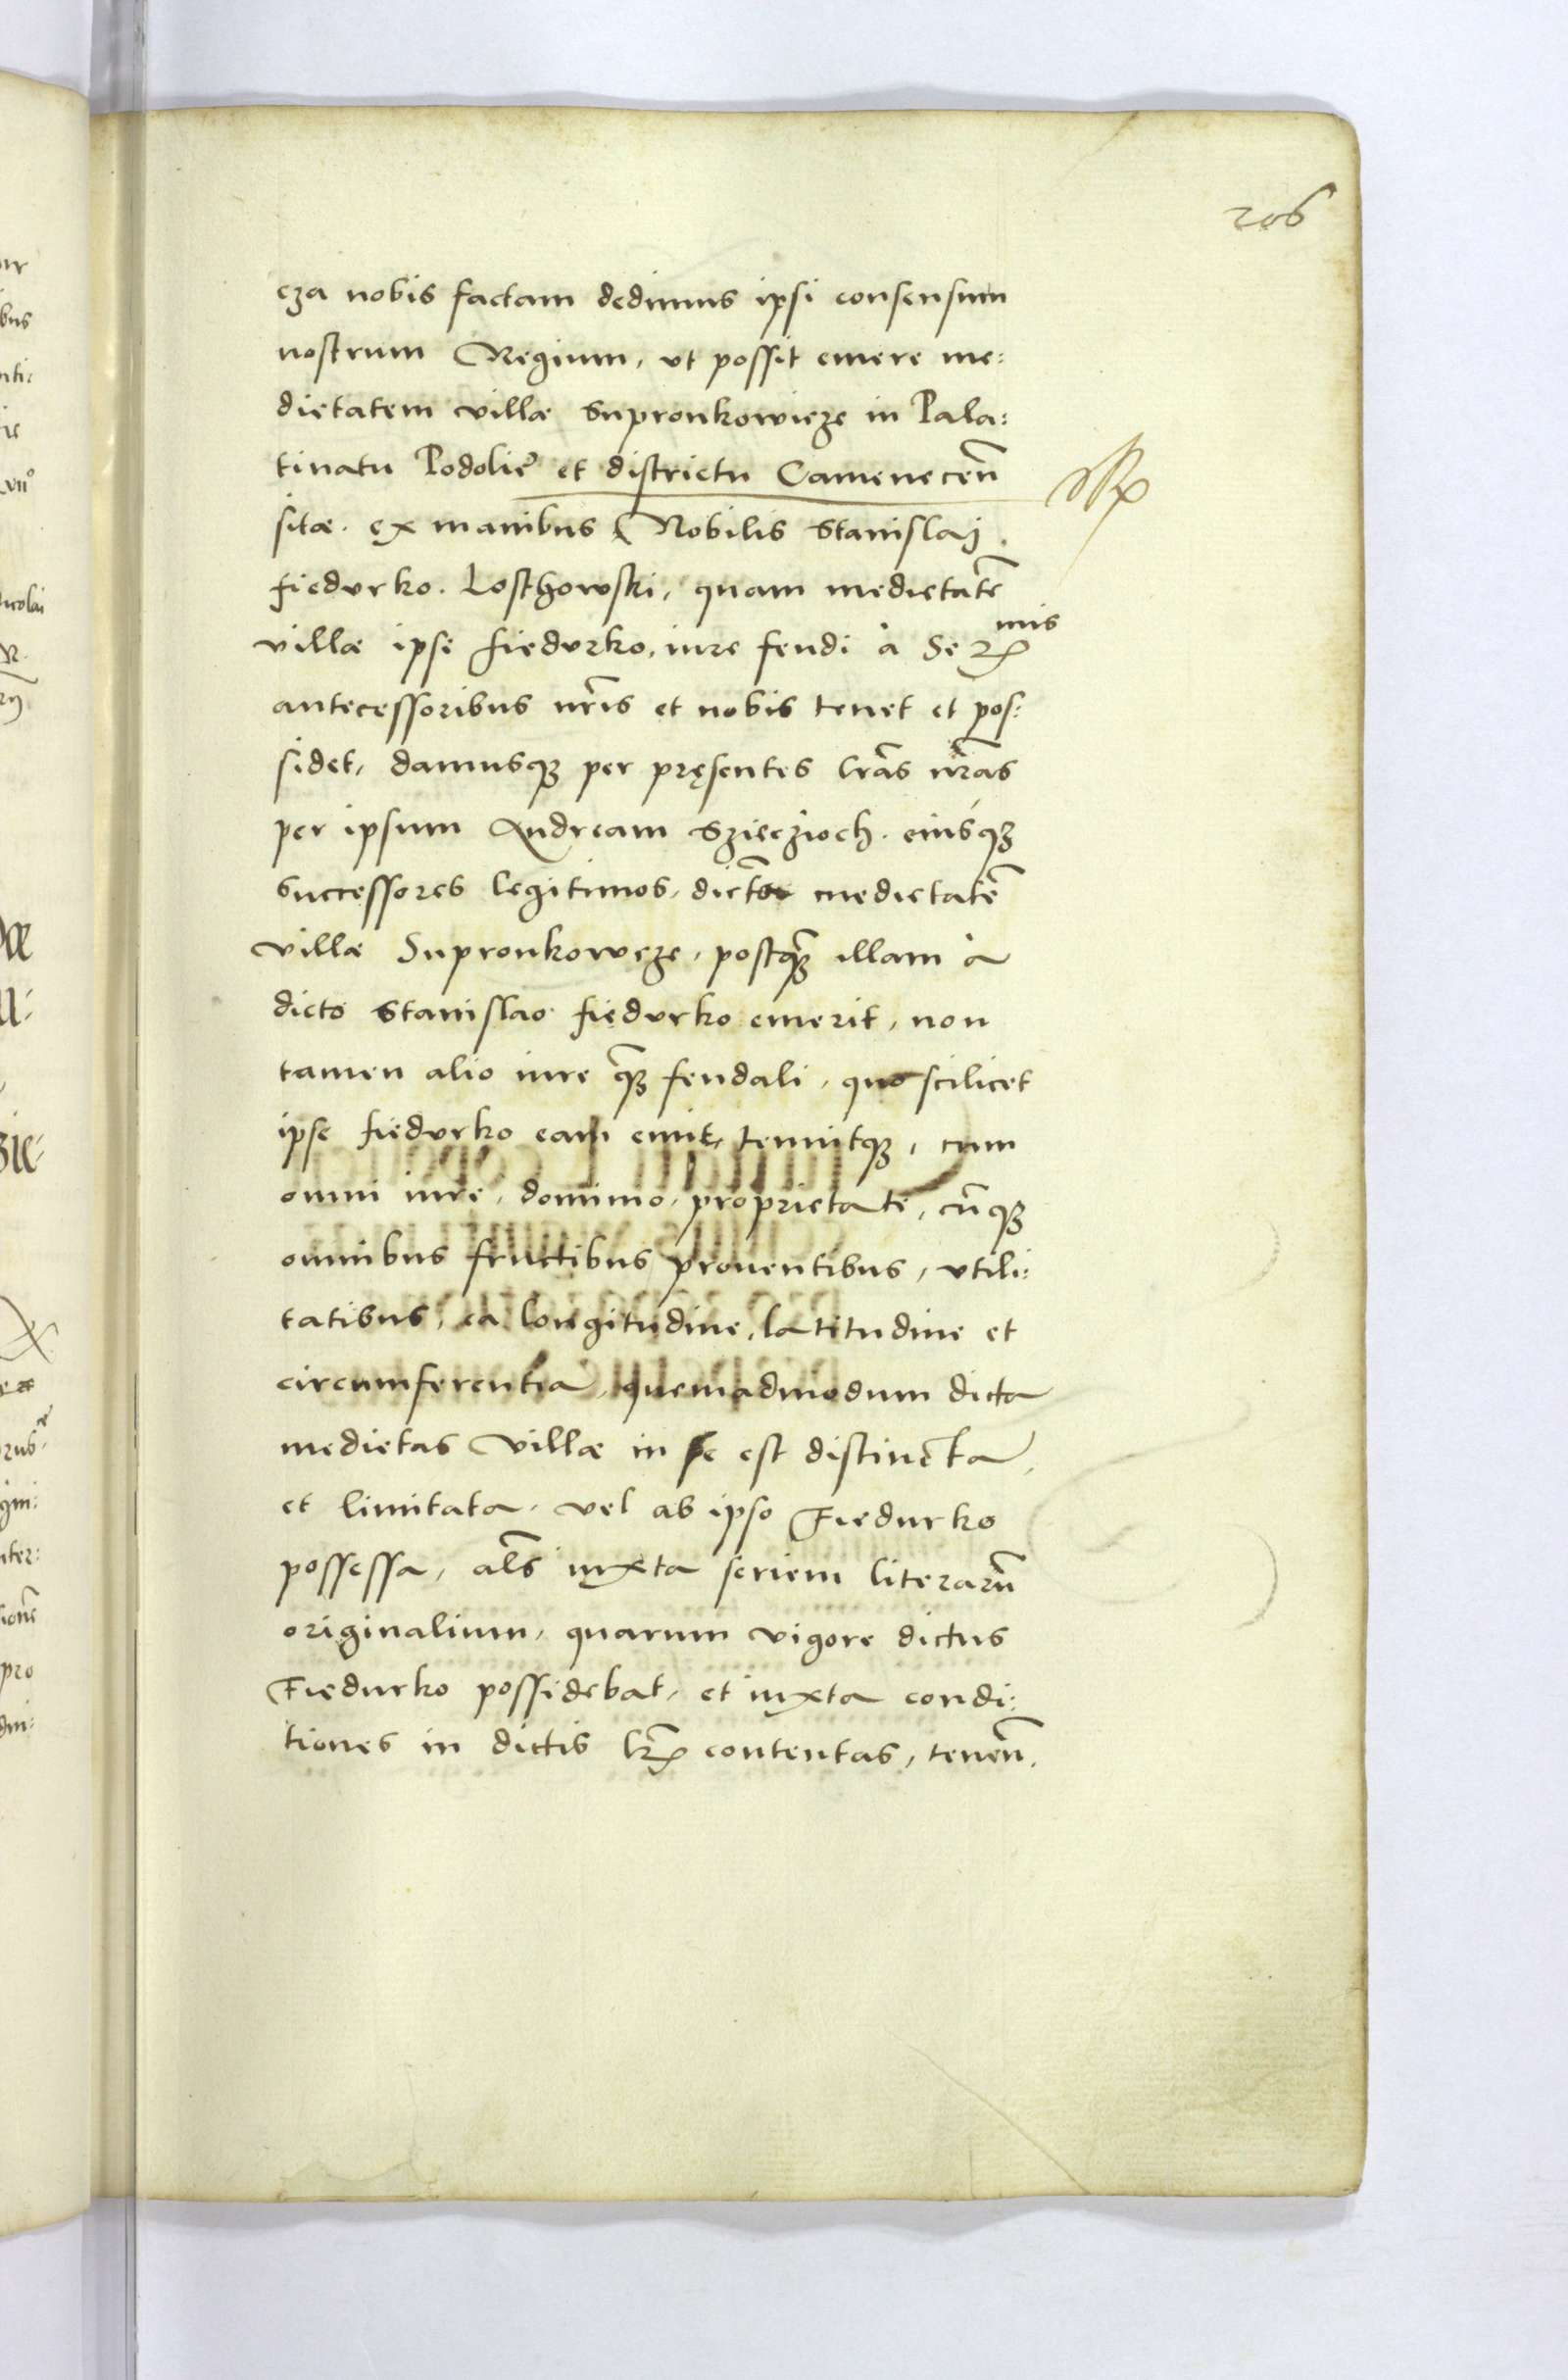 206
eza nobis factam dedimus ipsi consensum
nostrum Regium, ut possit emere me:
dietatem villæ Supronkowieze in Pala:
tinatu Podolie et districtu Camenecen̄
sitæ. ex manibus Nobilis Stanislai
fiedurko. Loschowski, quam medietatē
villæ ipse fiedurko, iure feudi à Ser mis
antecessoribus nr̄is et nobis tenet et pos:
sidet, damusq́ꝫ per pręsentes lrās nr̄as
per ipsum Andream Szieczioch. eiusq́ꝫ
successores legitimos, dictæ medietatē
villæ Supronkoweze, postq̄ꝫ illam à
dicto Stanislao fiedurko emerit, non
tamen alio iure q̄ꝫ feudali, quo scilicet
ipse fiedurko eam emit, tenuitqꝫ, cum
omni iure, dominio, proprietate, cūqꝫ
omnibus fructibus prouentibus, utili:
tatibus, ea longitudine, latitudine et
circumferentia, quemadmodum dicta
medietas villæ in se est distincta,
et limitata, vel ab ipso Fiedurko
possessa, al̄s iuxta seriem literarū
originalium, quarum vigore dictus
Fiedurko possidebat, et iuxta condi:
tiones in dictis lr̄is contentas, tenen̄.